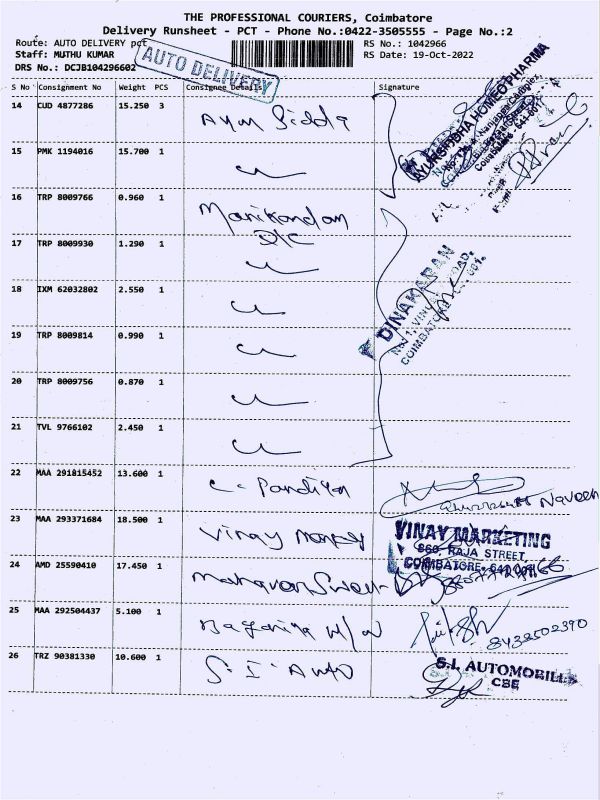 THE PROFESSIONAL COURIERS, Coimbatore
Delivery Runsheet - PCT - Phone No.:0422-3505555 - Page No.:2
Route: AUTO DELIVERY pct RS No.: 1042966
Staff: MUTHU KUMAR RS Date: 19-Oct-2022
DRS No.: DCJB104296602
AUTO DELIVERY
S No Consignment No Weight PCS Consignee Details Signature
14 CUD 4877286 15.250 3 Ayur Sidda
AYURSIDHA HOMEO PHARMA
15 PMK 1194016 15.700 1
16 TRP 8009766 0.960 1 Manikandan
17 TRP 8009930 1.290 1
DINAKARAN
18 IXM 62032802 2.550 1
19 TRP 8009814 0.990 1
20 TRP 8009756 0.870 1
21 TVL 9766102 2.450 1
22 MAA 291815452 13.600 1 Pandiyan
Naveen
23 MAA 293371684 18.500 1 Vinay
VINAY MARKETING
860, RAJA STREET
COIMBATORE- 641 001
24 AMD 25590410 17.450 1
25 MAA 292504437 5.100 1
8438502390
26 TRZ 90381330 10.600 1 S.I. Auto
S.I. AUTOMOBILES
CBE